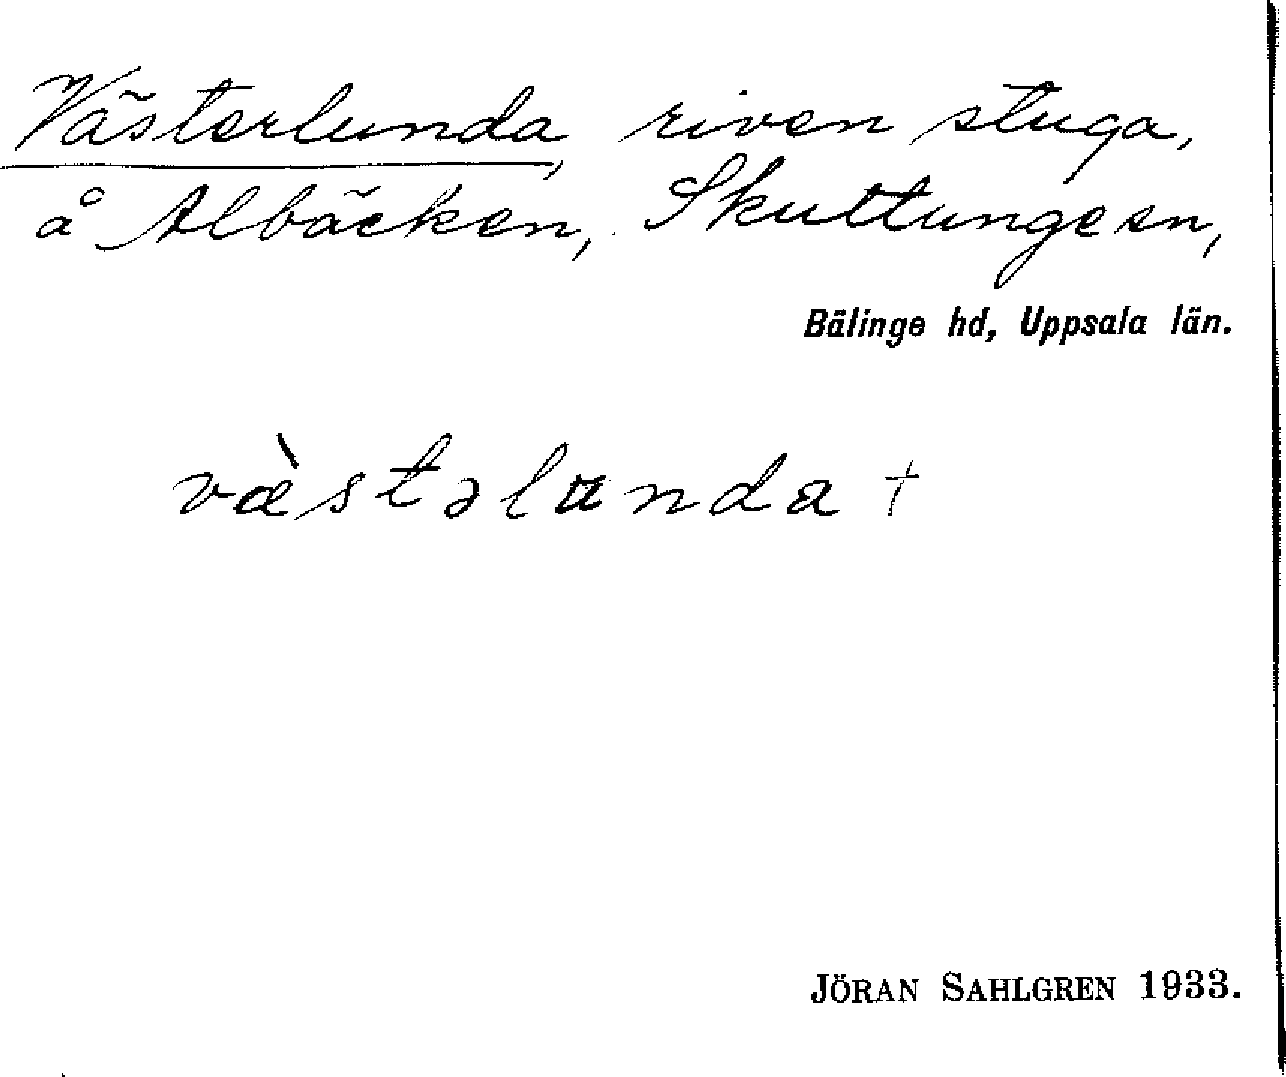 Västerlunda, riven stuga,
å Albäcken, Skuttunge sn,
Bälinge hd, Uppsala län.
væ̀stəlunda †
JÖRAN SAHLGREN 1933.